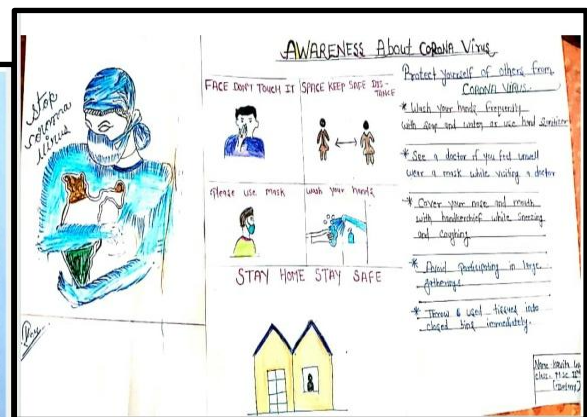 AWARENESS About CORONA Virus
stop
corona
virus
FACE DON'T TOUCH IT
SPACE KEEP SAFE DIS-
TANCE
Please use mask
wash your hands
STAY HOME STAY SAFE
Protect yourself of others from
CORONA VIRUS.
* Wash your hands frequently
with soap and water or use hand sanitizer
* See a doctor if you feel unwell
wear a mask while visiting a doctor
* Cover your nose and mouth
with handkerchief while sneezing
and coughing
* Avoid participating in large
gatherings
* Throw used tissues into
closed bins immediately.
Name
class. M.Sc